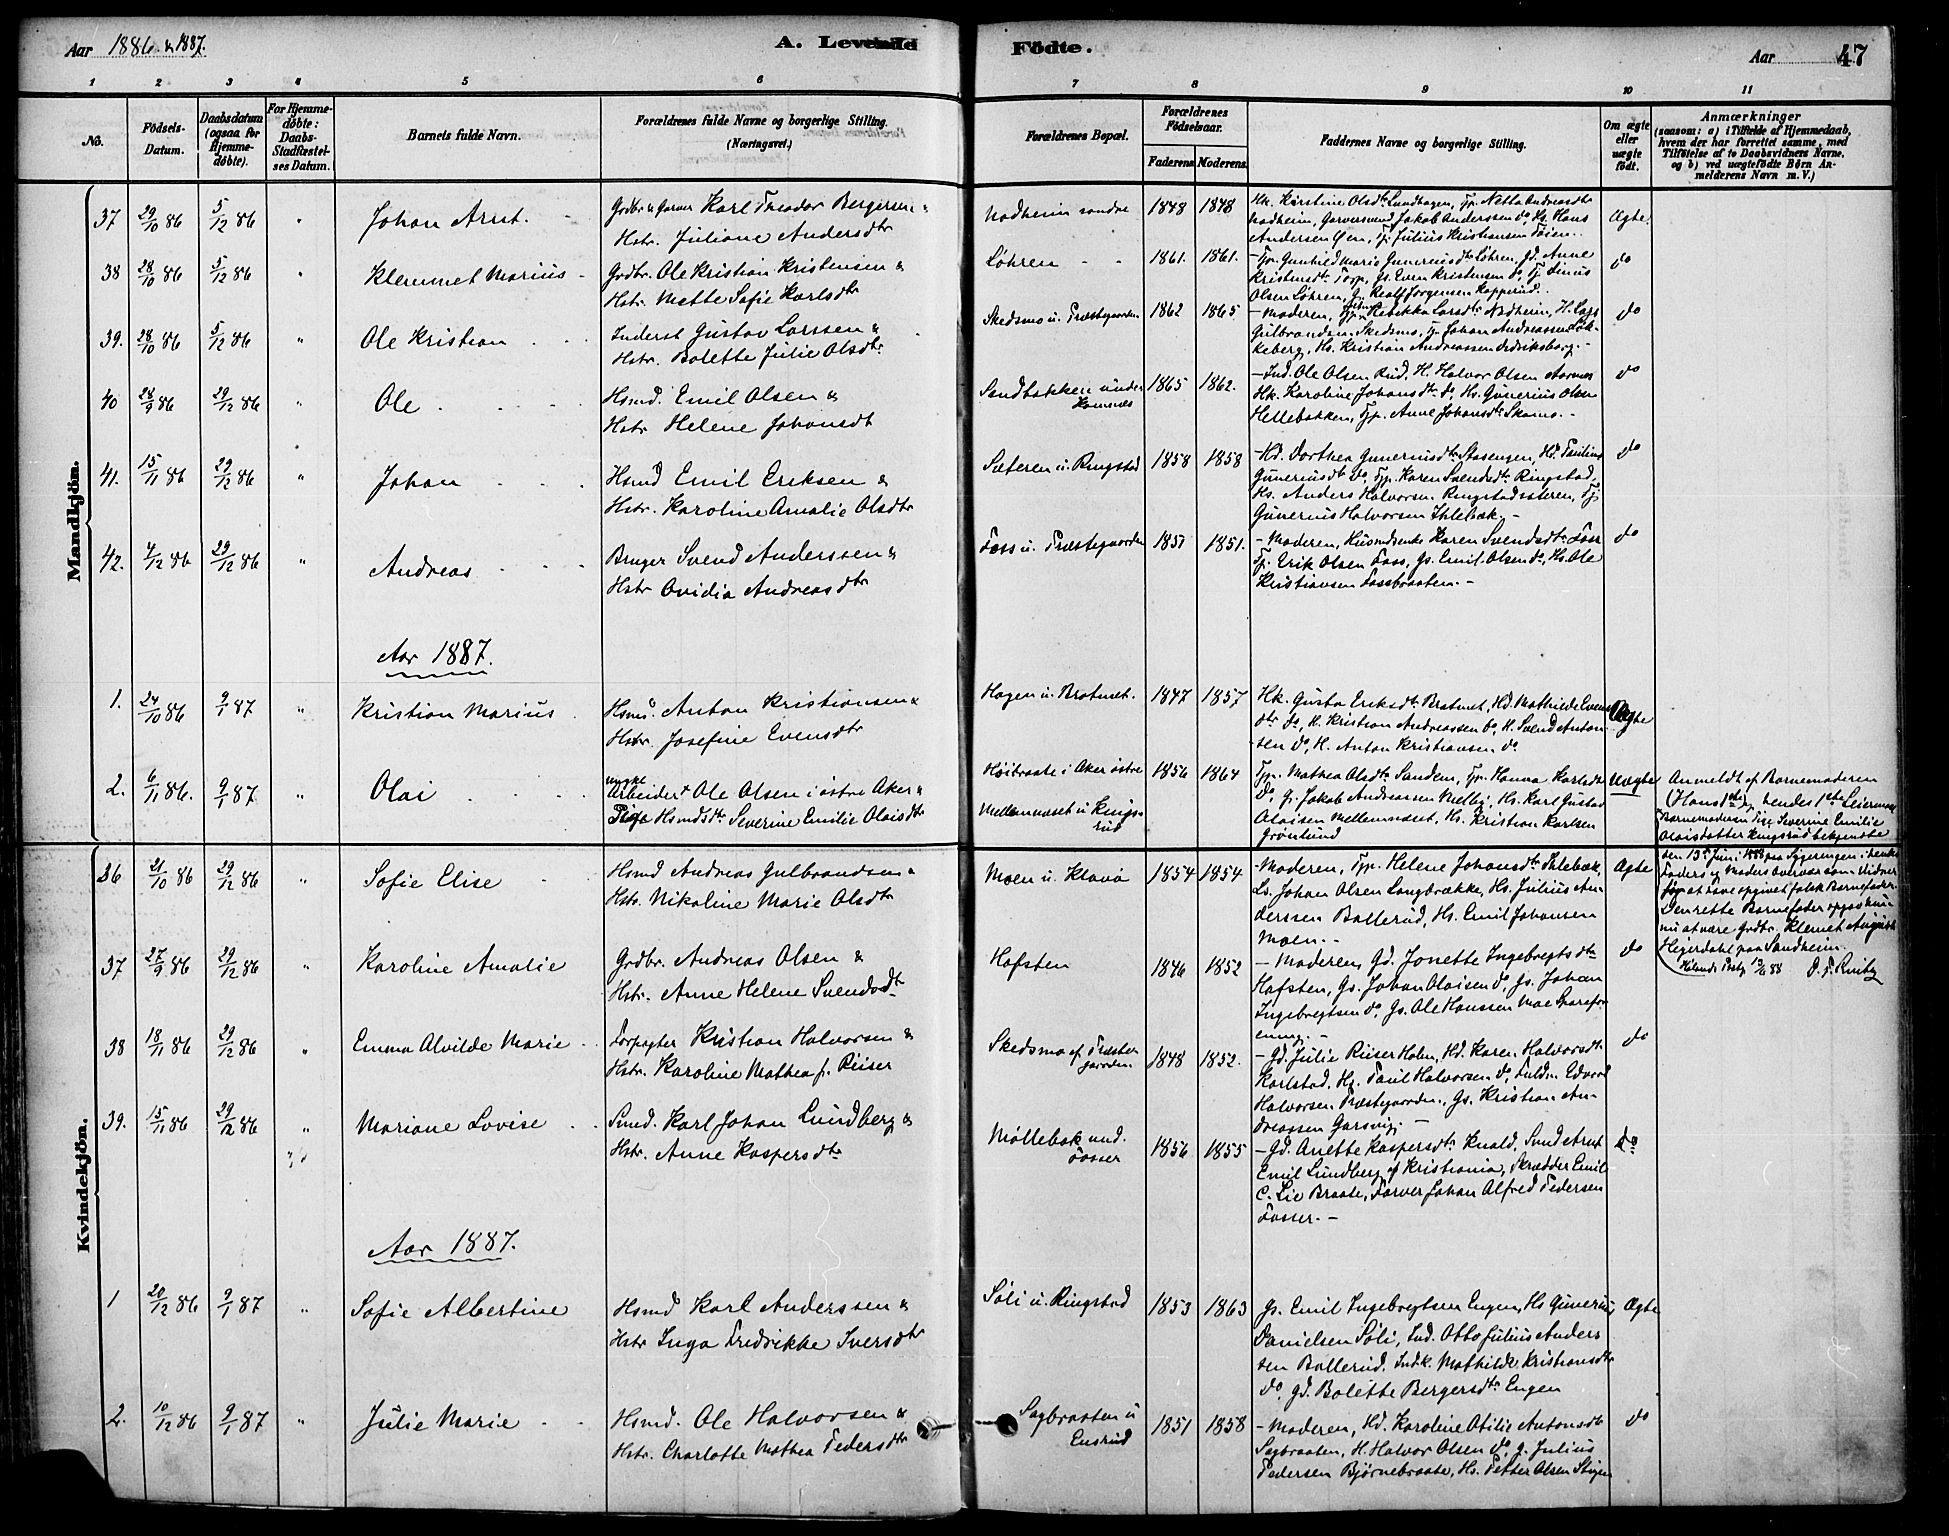 Aar 1886 & 1887.
A. Levende
Födte.
Aar
47
1 2 3 4 5 6 7 8 9 10 11
No.
Födsels-Datum.
Daabsdatum (ogsaa for Hjemme-döbte).
For Hjemme-döbte: Daabs-Stadfæstel-ses Datum.
Barnets fulde Navn.
Forældrenes fulde Navne og borgerlige Stilling. (Næringsvei.)
Forældrenes Bopæl.
Forældrenes Födselsaar.
Faderens. Moderens.
Faddernes Navne og borgerlige Stilling.
Om ægte eller uægte födt.
Anmærkninger
(saasom: a) i Tilfælde af Hjemmedaab,
hvem der har forrettet samme, med
Tilföielse af to Daabsvidners Navne,
og b) ved uægtefödte Börn An-
melderens Navn m. V.)
Mandkjön.
37 29/10 86 5/12 86 " Johan Arnt.
Grdbr. & Garver Karl Theodor Bergersen &
Hstr. Juliane Andersdtr
Nadheim søndre 1848 1848
Hk. Kirstine Olsdtr Lundhagen, Tp. Netta Andreasdtr
Nadheim, Garversvend Jakob Anderssen do, Hs. Hans
Andersen Øen, Tj. Julius Kristiansen Tøien.
Ægte
38 28/10 86 5/12 86 " Klemmet Marius
Grdbr. Ole Kristian Kristensen &
Hstr. Mette Sofie Karlsdtr
Løhren 1861. 1861.
Tp. Gunhild Marie Gunneriusdtr Løhren, Gd. Anne
Kristensdtr Torp, Gs. Even Kristensen do, Tj. Linus
Olsen Løhren, G. Realf Jorgensen Kopperud.
do
39. 28/10 86 5/12 86 " Ole Kristian
Inderst Gustav Larssen &
Hstr. Bolette Julie Olsdtr
Skedsmo u. Præstegaarden 1862 1865
Moderen, Tp. Rebekka Larsdtr Nadheim, H. Lars
Gulbrandsen Skedsmo, Tj. Johan Andreassen Løk-
keberg, Hs. Kristian Andreassen Fredriksborg.
do
40 28/9 86 29/12 86 " Ole
Hsmd. Emil Olsen &
Hstr Helene Johansdt
Sandbakken under
Komnæs
1865 1862.
Ind. Ole Olsen Rud. H. Halvor Olsen Aarnæs
Hk. Karoline Johansdtr do, Hs. Gunerius Olsen
Hellebakken, Tp. Anne Johansdtr Skamo.
do
41. 15/11 86 29/12 86 " Johan
Hsmd Emil Eriksen &
Hstr. Karoline Amalie Olsdtr
Sæteren u. Ringstad 1858 1858
Hd. Dorthea Guneriusdtr Stasengen, Hd. Pauline
Guneriusdtr do, Tp. Karen Svendsdtr Ringstad,
Hs. Anders Halvorsen Ringstadsæteren, Tj.
Gunerius Halvorsen Ihlebæk.
do
42. 4/12 86 29/12 86 " Andreas
Bruger Svend Anderssen &
Hstr Ovidia Andreasdtr
Foss u. Præstegaarden 1851 1851.
Moderen, Husmdsenke Karen Svendsdtr Foss
Tj. Erik Olsen Foss, Gs. Emil Olsen do, Hs. Ole
Kristiansen Fossbraaten.
do
Aar 1887.
1. 24/10 86 9/1 87 " Kristian Marius
Hsmd. Anton Kristiansen &
Hstr. Josefine Evensdtr
Hagen u. Bratnæt. 1847 1857
Hk. Gusta Eriksdtr Bratnæt, Hd. Mathilde Evens-
dtr do, H. Kristian Andreassen do, H. Svend Anton-
sen do, H. Anton Kristiansen do
Ægte
2. 6/11 86. 9/1 87 " Olai
ungkl. Arbeider Ole Olsen i østre Aker &
Pige Hsmdsdtr Severine Emilie Olaisdtr
Høibraate i Aker østre
Mellemnæset u. Kings-
rud
1856 1864
Tp. Mathea Olsdtr Sandem, Tp. Hanna Karlsdtr
do, G. Jakob Andreassen Melby, Hs. Karl Gustav
Olaisen Mellemnæset, Hs. Kristian Karlsen
Grønlund
Uægte
Anmeldt af Barnemoderen
(Hans 1ste og hendes 1ste Leiermaal
Barnemoderen Pige Severine Emilie
Olaisdatter Kingsrud bekjendte
den 13de Juni 1888 paa Sygesengen i hendes
Faders og Moders Overvær som Vidner
for at have opgivet falsk Barnefader.
Den rette Barnefader opgav hun
nu at være Grdbr. Klemet August
Heyerdahl paa Sandheim.
Kvindekjön.
36 21/10 86 29/12 86 " Sofie Elise
Hsmd Andreas Gulbrandsen &
Hstr. Nikoline Marie Olsdtr
Moen u. Klavø 1854 1854
Moderen, Tp. Helene Johansdtr Ihlebæk,
Ls. Johan Olsen Langbrække, Hs. Julius An-
derssen Bøllerud, Hs. Emil Johansen
Moen.
Ægte
37 27/9 86 29/12 86 " Karoline Amalie
Grdbr. Andreas Olsen &
Hstr. Anne Helene Svendsdtr
Hofsten 1846 1852
Moderen, Gd. Jonette Ingebregtsdtr
Hafsten, Gs. Johan Olaisen do, Gs. Johan
Ingebregtsen do, Gs. Ole Hanssen Moe Spørefor-
ening.
do
38 18/11 86 29/12 86 " Emma Alvilde Marie
Forpagter Kristian Halvorsen &
Hstr. Karoline Mathea f. Riiser
Skedsmo af Præste-
gaarden
1848 1852.
Gd. Julie Riiser Holm, Hd. Karen Halvorsdtr
Karlstad, Hs. Paul Halvorsen do, Fuldm. Edvard
Halvorsen Præstegaarden, Gs. Kristian An-
dreassen Garsvig.
do
39. 15/11 86 29/12 86 " Mariane Lovise
Smed. Karl Johan Lundberg &
Hstr. Anne Kaspersdtr
Møllebak und.
Fosser
1856 1855
Gd. Anette Kaspersdtr Knald, Smd Arnt
Emil Lundberg af Kristiania, Skrædder Emil
C. Lie Braate, Farver Johan Alfred Pedersen
Fosser.
do
Aar 1887.
1 20/12 86 9/1 87 " Sofie Albertine
Hsmd Karl Anderssen &
Hstr Inga Fredrikke Iversdtr
Søli u. Ringstad 1853 1863
Gs. Emil Ingebregtsen Engen, Hs Gunerius
Danielsen Søli, Ind. Otto Julius Anders-
sen Bøllerud. Indk. Mathilde Kristiansdtr
do, Gd. Bolette Bergersdtr Engen
Ægte
2. 10/12 86 9/1 87 " Julie Marie
Hsmd. Ole Halvorsen &
Hstr. Charlotte Mathea Pedersdtr
Sagbraaten u
Ensrud
1851 1858
Moderen, Hd. Karoline Otilie Antonsdtr
Sagbraaten, H. Halvor Olsen do, G. Julius
Pedersen Bjørnebraate, Hs. Petter Olsen Stigen
do